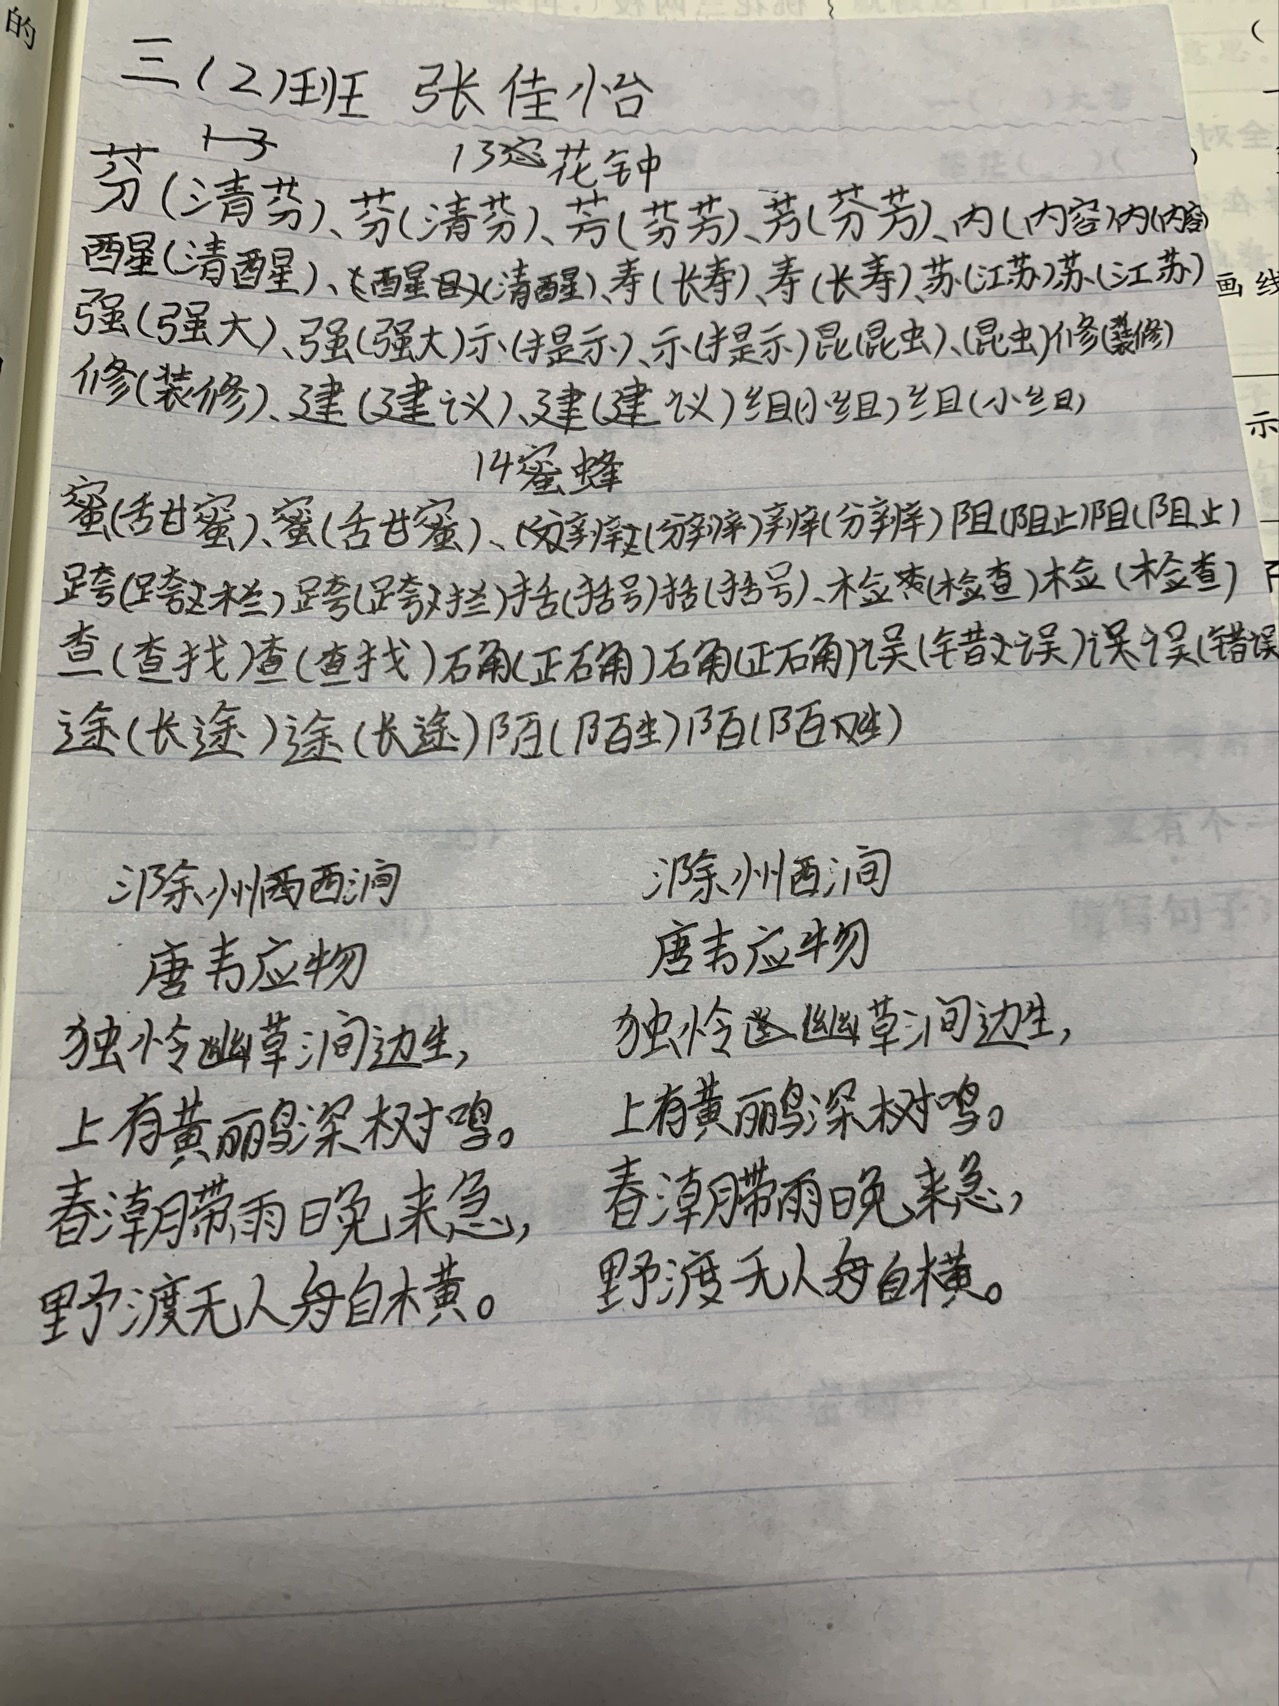 的
三(2)班 张佳怡
13 花钟
芬(清芬)、芬(清芬)、芳(芬芳)、芳(芬芳)、内(内容)内(内容)
醒(清醒)、(清醒)、寿(长寿)、寿(长寿)、苏(江苏)苏(江苏)
强(强大)、强(强大)示(提示)、示(提示)昆(昆虫)、(昆虫)修(装修)
修(装修)、建(建议)、建(建议)组(小组)组(小组)
14蜜蜂
蜜(甜蜜)、蜜(甜蜜)、(分辨)辨(分辨)阻(阻止)阻(阻止)
跨(跨栏)跨(跨拦)括(括号)括(括号)、检(检查)检(检查)
查(查找)查(查找)确(正确)确(正确)误(错误)误误(错误
途(长途)途(长途)陌(陌生)陌(陌生)
滁州西涧
唐韦应物
独怜幽草涧边生,
上有黄鹂深树鸣。
春潮带雨晚来急,
野渡无人舟自横。
滁州西涧
唐韦应物
独怜幽草涧边生,
上有黄鹂深树鸣。
春潮带雨晚来急,
野渡无人舟自横。
全对
画线
示